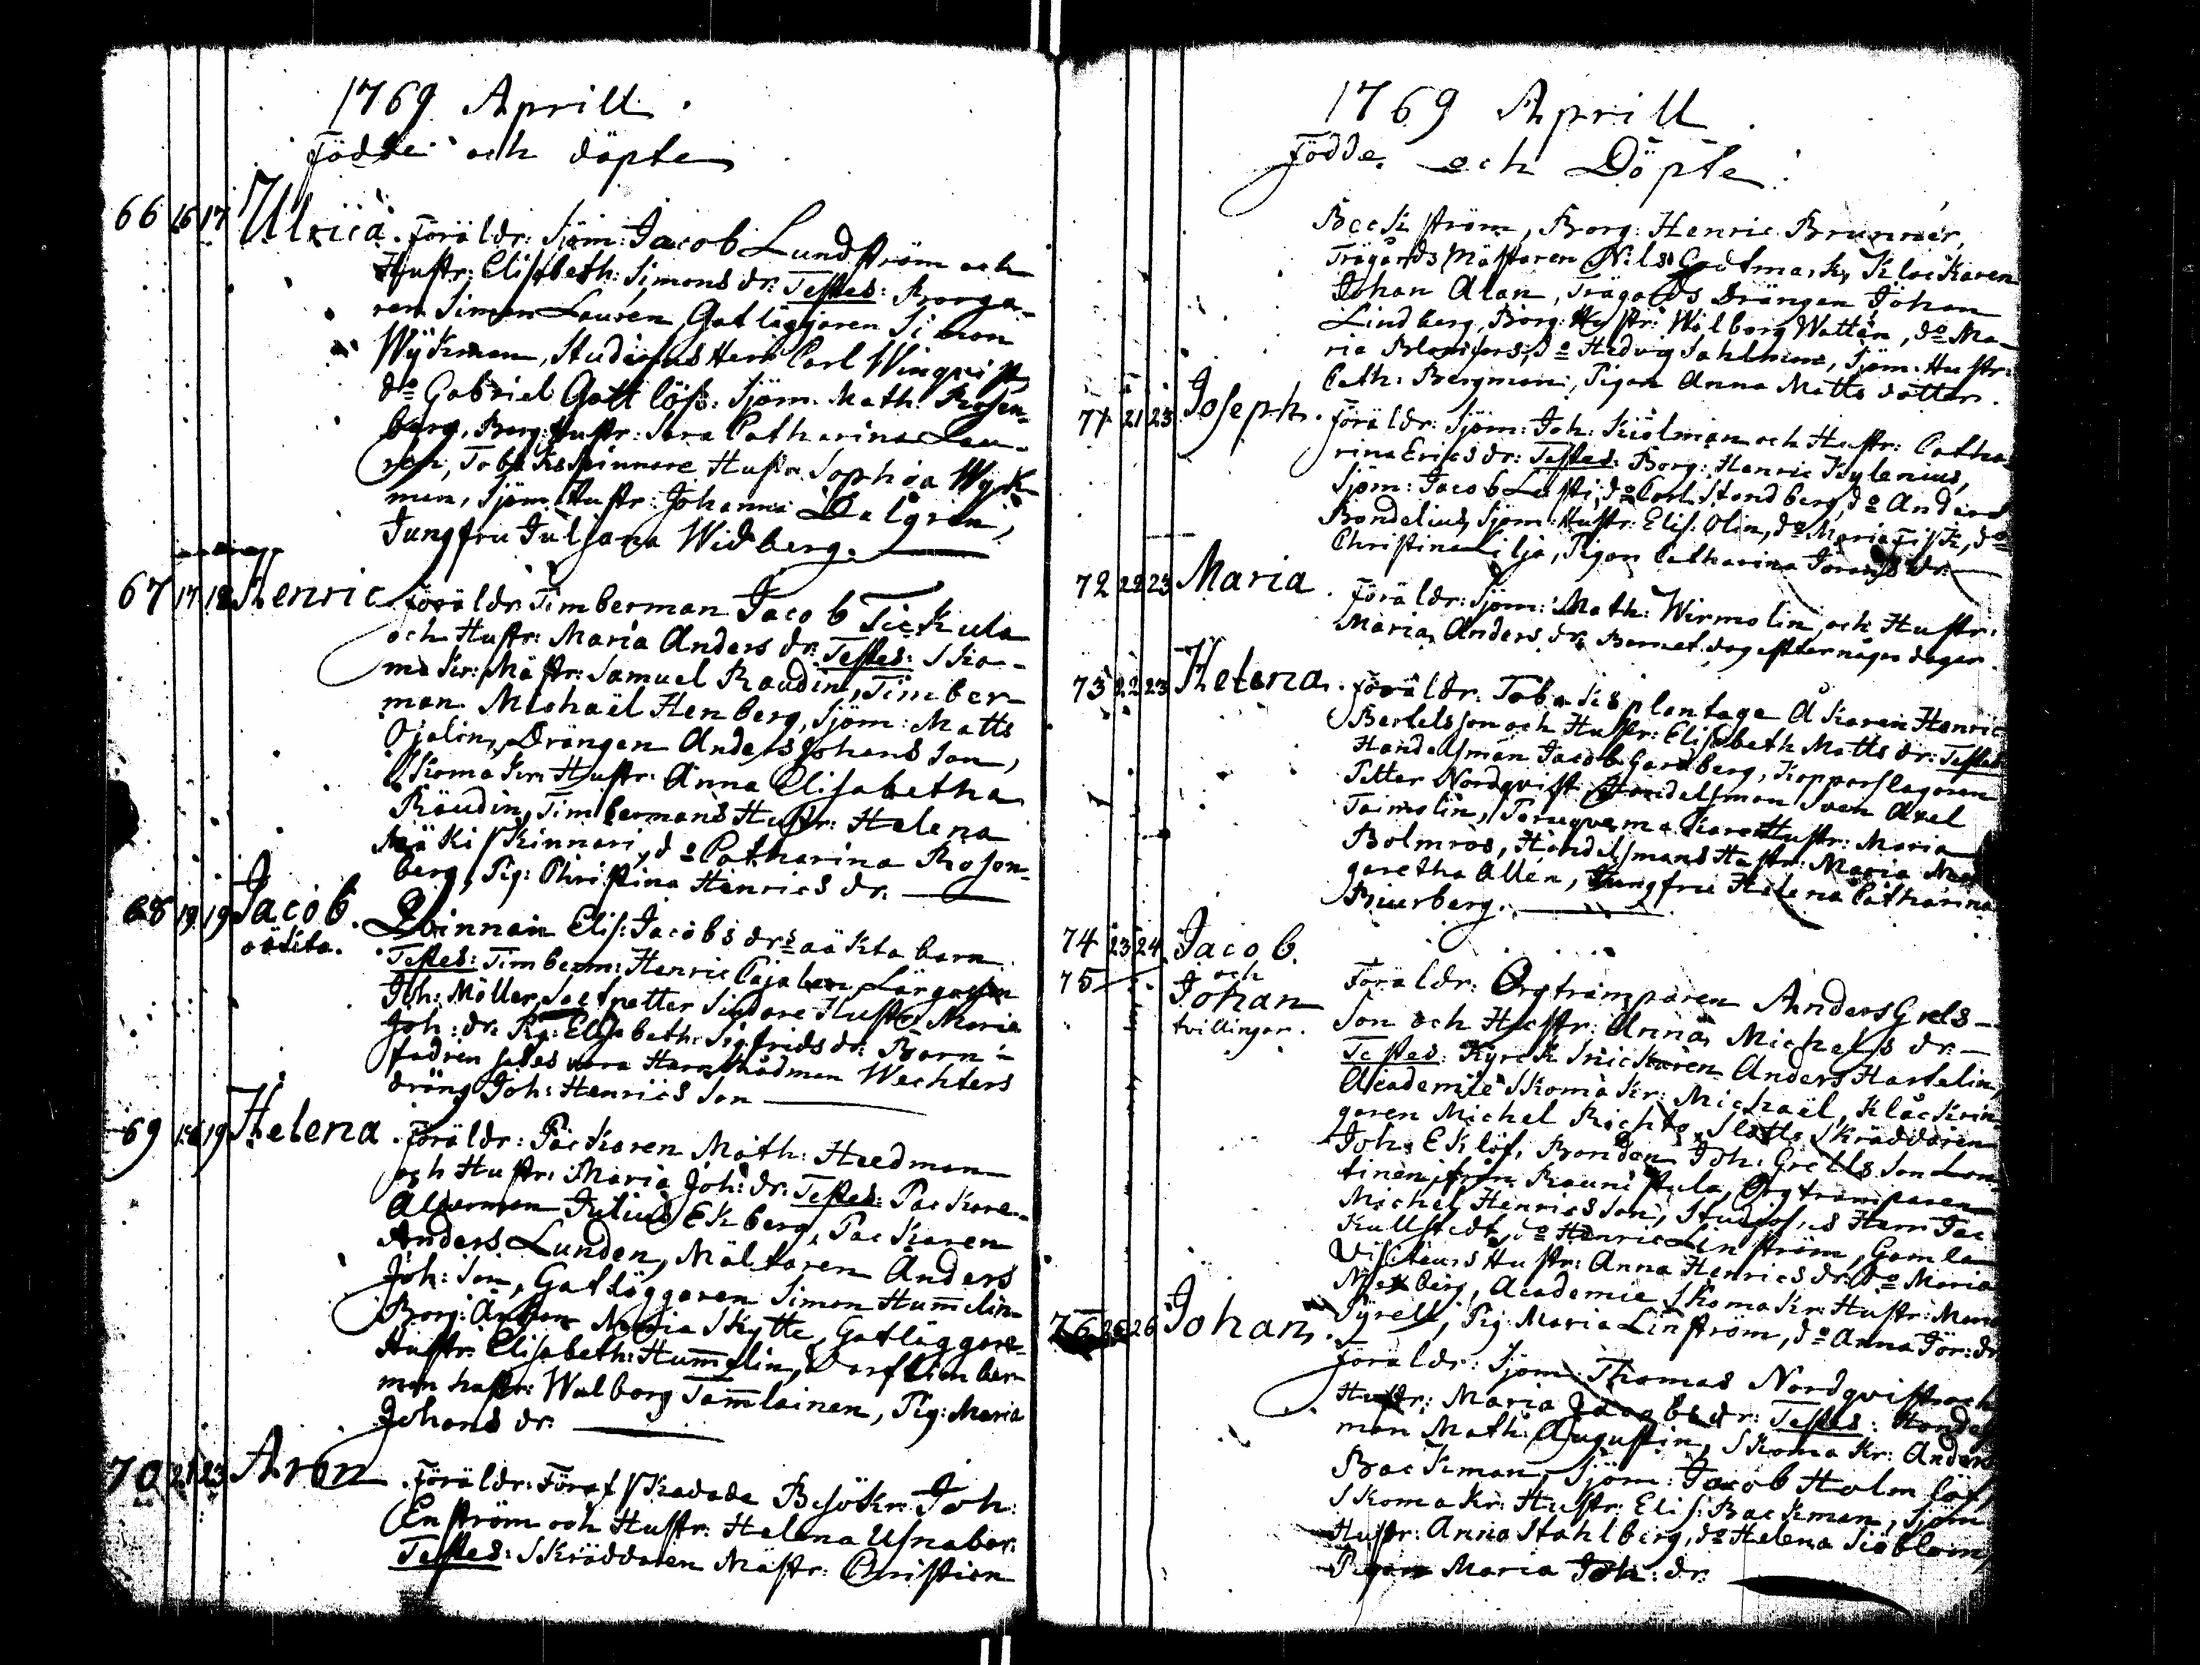 1769 Aprill.
Födde och döpte
66 16 17 Ulrica. Föräldr: Sjöm: Jacob Lundström och
Hustr: Elisabeth: Simons dr: Testes: Borga-
ren Simon Lauren, Gatläggaren Simon
Wykman, Studiosus Herr Carl Wingvist
do Gabriel Gottlöss: Sjöm. Math: Rosen-
berg, Borg: Hustr: Sara Catharina Lau-
ren, Tobaksspinnare Hustr: Sophia Wyk-
man, Sjöm. Hustr: Johanna Dalgren,
Jungfru Juliana Widberg.
67 17 18 Henric. Föräldr: Timberman Jacob Tickula
och Hustr: Maria Anders dr: Testes: Sko-
makr: Mästr: Samuel Raudin, Timber-
man Michaël Henberg, Sjöm: Matts
Ojalin, Drängen Anders Johans Son,
Skomakr: Hustr: Anna Elisabetha
Raudin, Timbermans Hustr: Helena
Mäki Skinnari, do Catharina Rosen-
berg, Pig: Christina Henrics dr.
68 19 19 Jacob. Qvinnan Elis: Jacobs drs oäkta barn.
oäkta. Testes: Timberm: Henric Cajalen,
Joh: Möller, Hustr: Maria
Joh: dr. Pig: Elisabeth: Sigfrids dr: Barn-
fadren sades vara Herr Rådman Wechters
dräng Joh: Henrics Son
69 18 19 Helena. Föräldr: Packaren Math: Heedman
och Hustr: Maria Joh: dr: Testes: Packare-
Alderman Julius Ekberg, Packaren
Anders Lunden, Mältaren Anders
Joh: Son, Gatläggaren Simon Hummelin
Borg: Änkan Maria Skytte, Gatläggare-
Hustr: Elisabeth: Hummelin, Varftimber-
man hustr: Walborg Tammlainen, Pig: Maria
Johans dr.
70 21 23 Aron. Föräldr: Föraf Skedade Besökr: Joh:
Enström och Hustr: Helena Usnaber.
Testes: Skräddaren Mästr: Christian
1769 Aprill.
Födde och Döpte.
Beckström, Borg: Henric Brunner,
Trägårds Mästaren Nils Godtmark, Klockaren
Johan Alan, Trägårds Drängen Johan
Lindberg, Borg: Hustr: Walborg Wattén, do Ma-
ria Blomfors, do Hedvig Sahlman, Sjöm: Hustr:
Cath: Bergman, Pigan Anna Matts dotter.
71 21 23 Joseph. Föräldr: Sjöm: Joh: Kiölman och Hustr: Catha-
rina Erics dr: Testes: Borg: Henric Kylenius,
Sjöm: Jacob Lusti, do Carl Strandberg, do Anders
Bondelius, Sjöm: Hustr: Elis: Olin, do Maria Fisk, do
Christina Lilja, Pigan Catharina Jörans dr.
72 22 23 Maria. Föräldr: Sjöm: Math: Wirmolin, och Hustr:
Maria Anders dr. Barnet dog efter några dagar.
73 22 23 Helena. Föräldr: Tobaksplantage Åkaren Henric
Bertelsson och Hustr: Elisabeth Matts dr: Testes
Handelsman Jacob Gardberg, Kopparslagaren
Petter Nordqvist, Handelsman Sven Axel
Taimolin, Peruqvemakare Hustr: Maria
Bolmros, Handelsmans Hustr: Maria Mar-
garetha Allén, Jungfru Helena Catharina
Biurberg.
74 23 24 Jacob.
75 och
Johan
tvillingar.
Föräldr: Orgtramparen Anders Grels-
Son och Hustr: Anna Michels dr.
Testes: Kyrck Snickaren Anders Hartelin,
Academie Skomakr: Michaël, Klåckrin-
garen Michel Richter, Slotts Skräddaren
Joh: Eklöf, Bonden Joh: Grells Son
från Raunistula, Orgtramparen
Michel Henrics Son, Studiosus Herr Jac
Kullstedt, do Henric Linström, Gamla
Visiteurs Hustr: Anna Henrics dr: do Maria
berg, Academie Skomakr: Hustr: Maria
Pyrell, Pig: Maria Linström, do Anna Jör: dr
76 26 26 Johan. Föräldr: Sjöm: Thomas Nordqvist och
Hustr: Maria Jacobs dr: Testes: Handels
man Math: Augustin, Skomakr: Anders
Backman, Sjöm: Jacob Holmlöf,
Skomakr: Hustr: Elis: Backman, Sjöm
Hustr: Anna Stahlberg, do Helena Siöblom,
Pigan Maria Joh: dr.